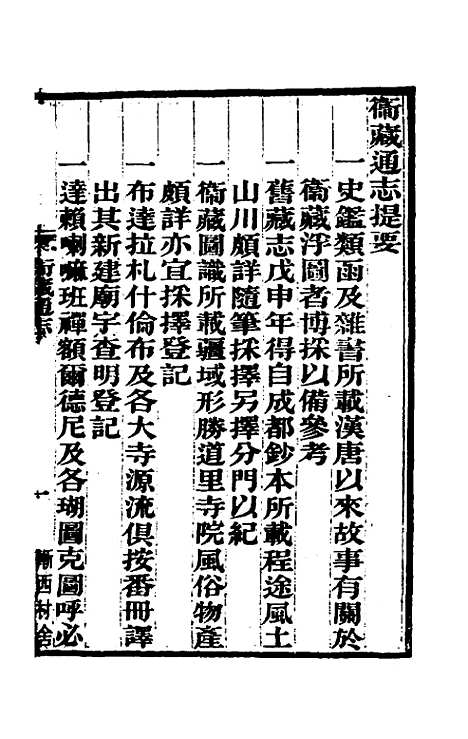 衞藏通志提要
一史鑑類函及雜書所載漢唐以來故事有關於
衞藏浮圖者博採以備參考
一舊藏志戊申年得自成都鈔本所載程途風土
山川頗詳隨筆採擇另擇分門以紀
一衞藏圖識所載疆域形勝道里寺院風俗物產
頗詳亦宜採擇登記
一布達拉札什倫布及各大寺源流俱按番冊譯
出其新建廟宇查明登記
一達賴喇嘛班禪額爾德尼及各瑚圖克圖呼必
衞藏通志
一
漸西村舍